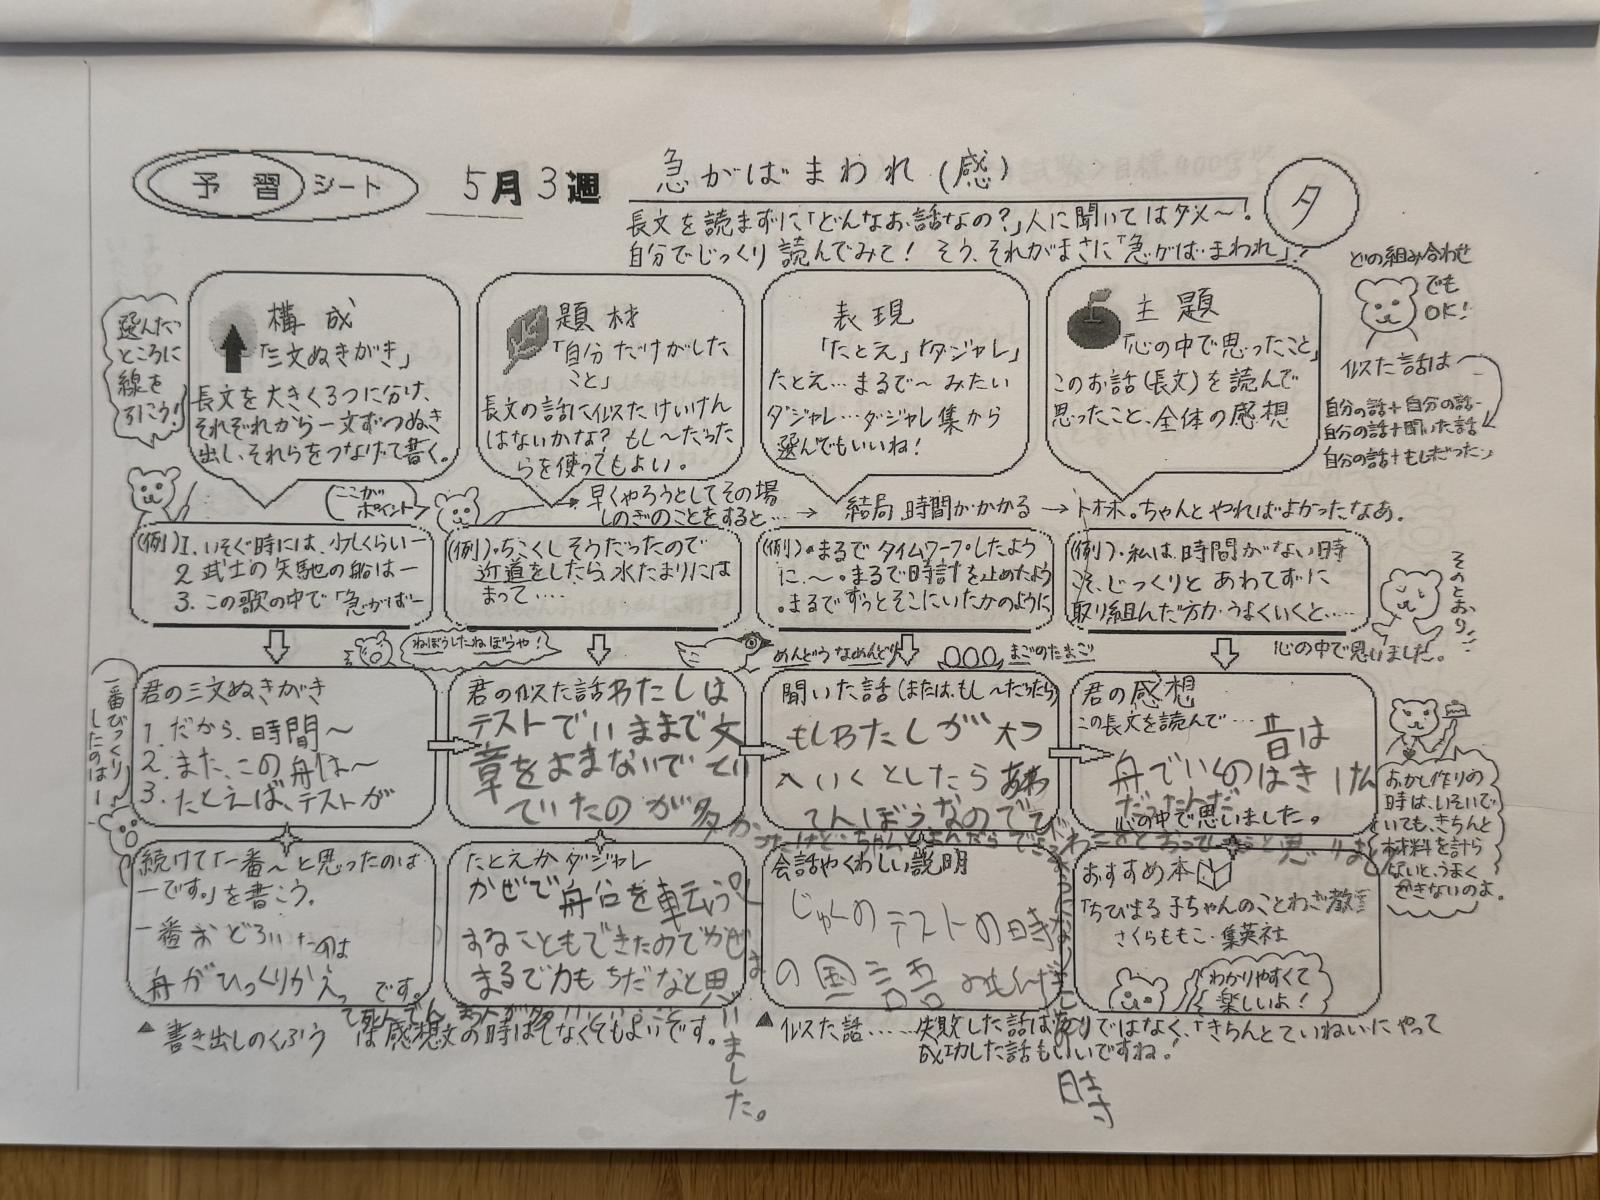 予習シート 5月3週 急がばまわれ(感) タ
長文を読まずに「どんなお話なの?」人に聞いてはダメ〜!
自分でじっくり読んでみて! そう、それがまさに「急がば、まわれ」!
選んだ
ところに
線を
引こう!
構成
「三文ぬきがき」
長文を大きく3つに分け、
それぞれから一文ずつぬき
出し、それらをつなげて書く。
題材
「自分だけがした
こと」
長文の話に似たけいけん
はないかな? もし〜だった
らを使ってもよい。
表現
「たとえ」「ダジャレ」
たとえ…まるで〜みたい
ダジャレ…ダジャレ集から
選んでもいいね!
主題
「心の中で思ったこと」
このお話(長文)を読んで
思ったこと、全体の感想
どの組み合わせ
でも
OK!
似た話は
自分の話+自分の話
自分の話+聞いた話
自分の話+もしだったら
ここが
ポイント
早くやろうとしてその場
しのぎのことをすると…→ 結局、時間がかかる → トホホ。ちゃんとやればよかったなあ。
(例)1. いそぐ時には、少しくらいー
2. 武士の矢馳の船はー
3. この歌の中で「急がばー
(例)・ちこくしそうだったので
近道をしたら、水たまりには
まって‥‥
(例)・まるでタイムワープしたよう
に、〜。まるで時計を止めたよう
・まるでずっとそこにいたかのように
(例)・私は、時間がない時
こそ、じっくりとあわてずに
取り組んだ方がうまくいくと、…
心の中で思いました。
そのとおり!
ねぼうしたねぼうや!
めんどうなめんどり
まごのたまご
一番びっくり
したのはー
君の三文ぬきがき
1. だから、時間〜
2. また、この舟は〜
3. たとえば、テストが
君の似た話 わたしは
テストでいままで文
章をよまないでとい
ていたのが多かったけどちゃんとよんだら
聞いた話(または、もし〜だったら)
もしわたしが
いくとしたらあわ
てんぼうなので
君の感想
この長文を読んで…
昔は
舟でいくのはきけん
だったんだ
心の中で思いました。
おかし作りの
時は、いそいで
いても、きちんと
材料を計ら
ないと、うまく
できないのよ。
続けて「一番〜と思ったのは
ーです。」を書こう。
一番おどろいたのは
舟がひっくりかえっ
です。
たとえかダジャレ
かぜで舟台を転ぷく
することもできたのでかぜは
まるで力もちだなと思
いました。
会話やくわしい説明
じゅくのテストの時
の国語
時
おすすめ本
「ちびまる子ちゃんのことわざ教室」
さくらももこ・集英社
わかりやすくて
楽しいよ!
▲書き出しのくふうは感想文の時はしなくてもよいです。
▲似た話……失敗した話ばかりではなく、「きちんとていねいにやって
成功した話もいいですね!